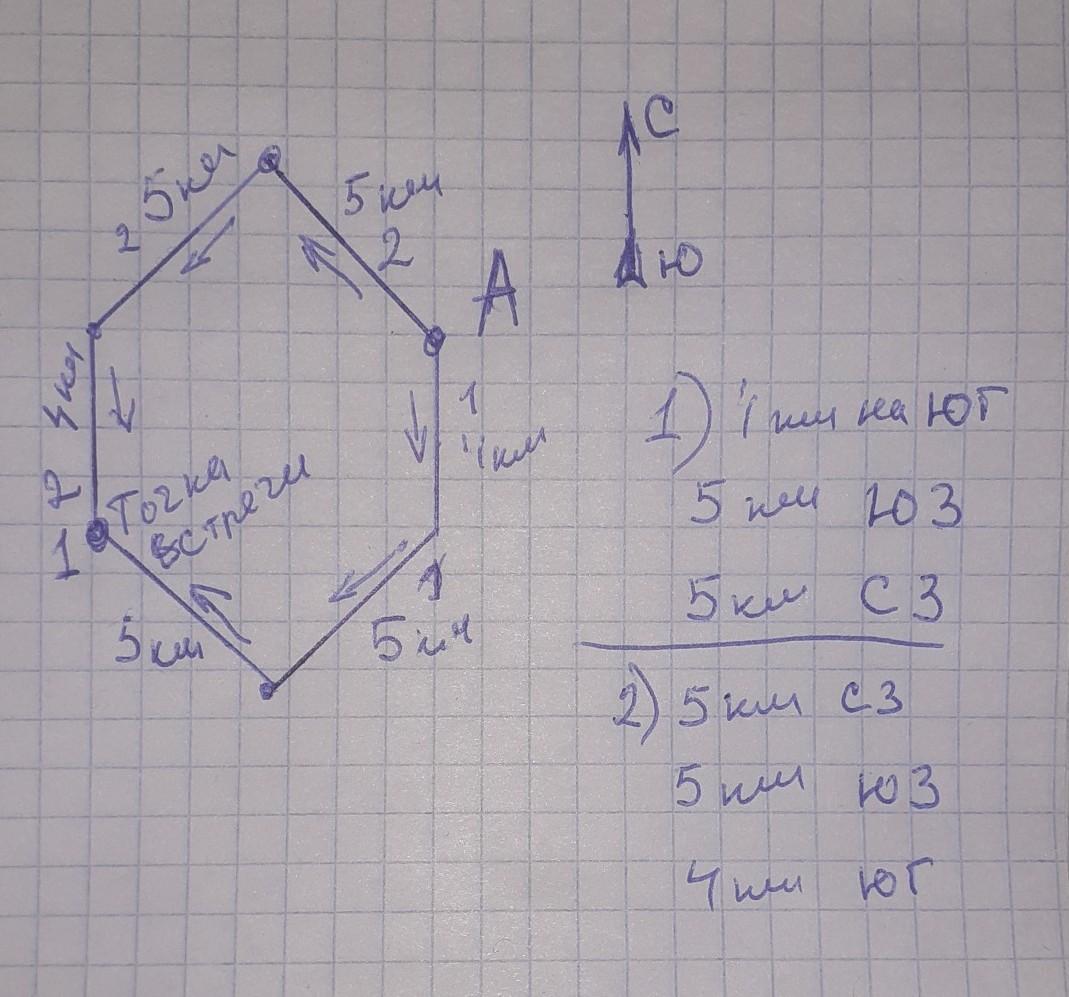 С
Ю
5 км
5 км
2
2
А
4 км
1
4 км
2
1
Точка
встречи
1
5 км
5 км
1) 4 км на ЮГ
5 км ЮЗ
5 км СЗ
2) 5 км СЗ
5 км ЮЗ
4 км ЮГ